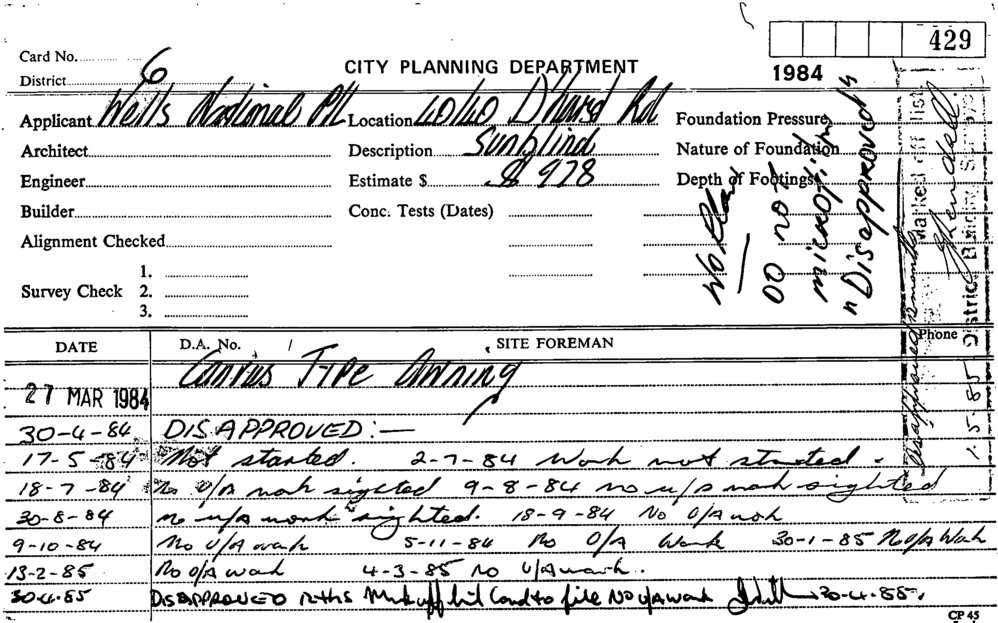 429
Card No.
District 6
CITY PLANNING DEPARTMENT
1984
Applicant Wells National Location 40/40 Rd Foundation Pressure
Architect Description Sunblind Nature of Foundation
Engineer Estimate $ $ 978 Depth of Footings
Builder Conc. Tests (Dates)
Alignment Checked
1.
Survey Check 2.
3.
No Plan
DO NOT
microfilm
Disapproved
Marked off list
District Building
1.5.85
disapproved months
DATE D.A. No. / SITE FOREMAN Phone
Canvas Type Awning
27 MAR 1984
30-4-84 DISAPPROVED:—
17-5-84 Not started. 2-7-84 Work not started.
18-7-84 No U/A work sighted 9-8-84 no u/a work sighted
30-8-84 no u/a work sighted. 18-9-84 No U/A work
9-10-84 No U/A work 5-11-84 No U/A Work 30-1-85 No U/A Work
13-2-85 No U/A work 4-3-85 No U/A work.
30.4.85 DISAPPROVED Mark off list Card to file No U/A work 30-4-85.
CP 45